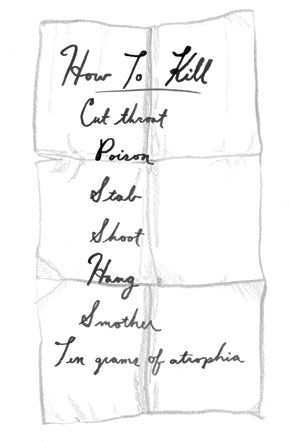 How To Kill
Cut throat
Poison
Stab
Shoot
Hang
Smother
Ten grams of atrophia